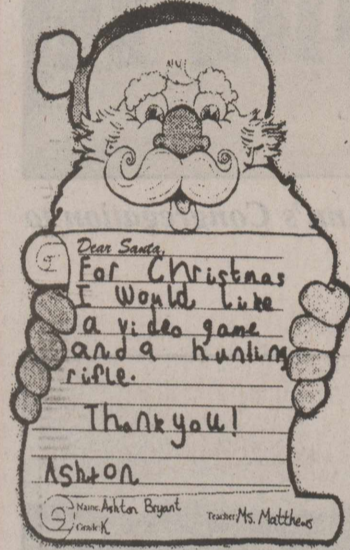 Dear Santa,
For Christmas
I would like
a video game
and a hunting
rifle.
Thank you!
Ashton
Name: Ashton Bryant Teacher: Ms. Matthews
Grade: K